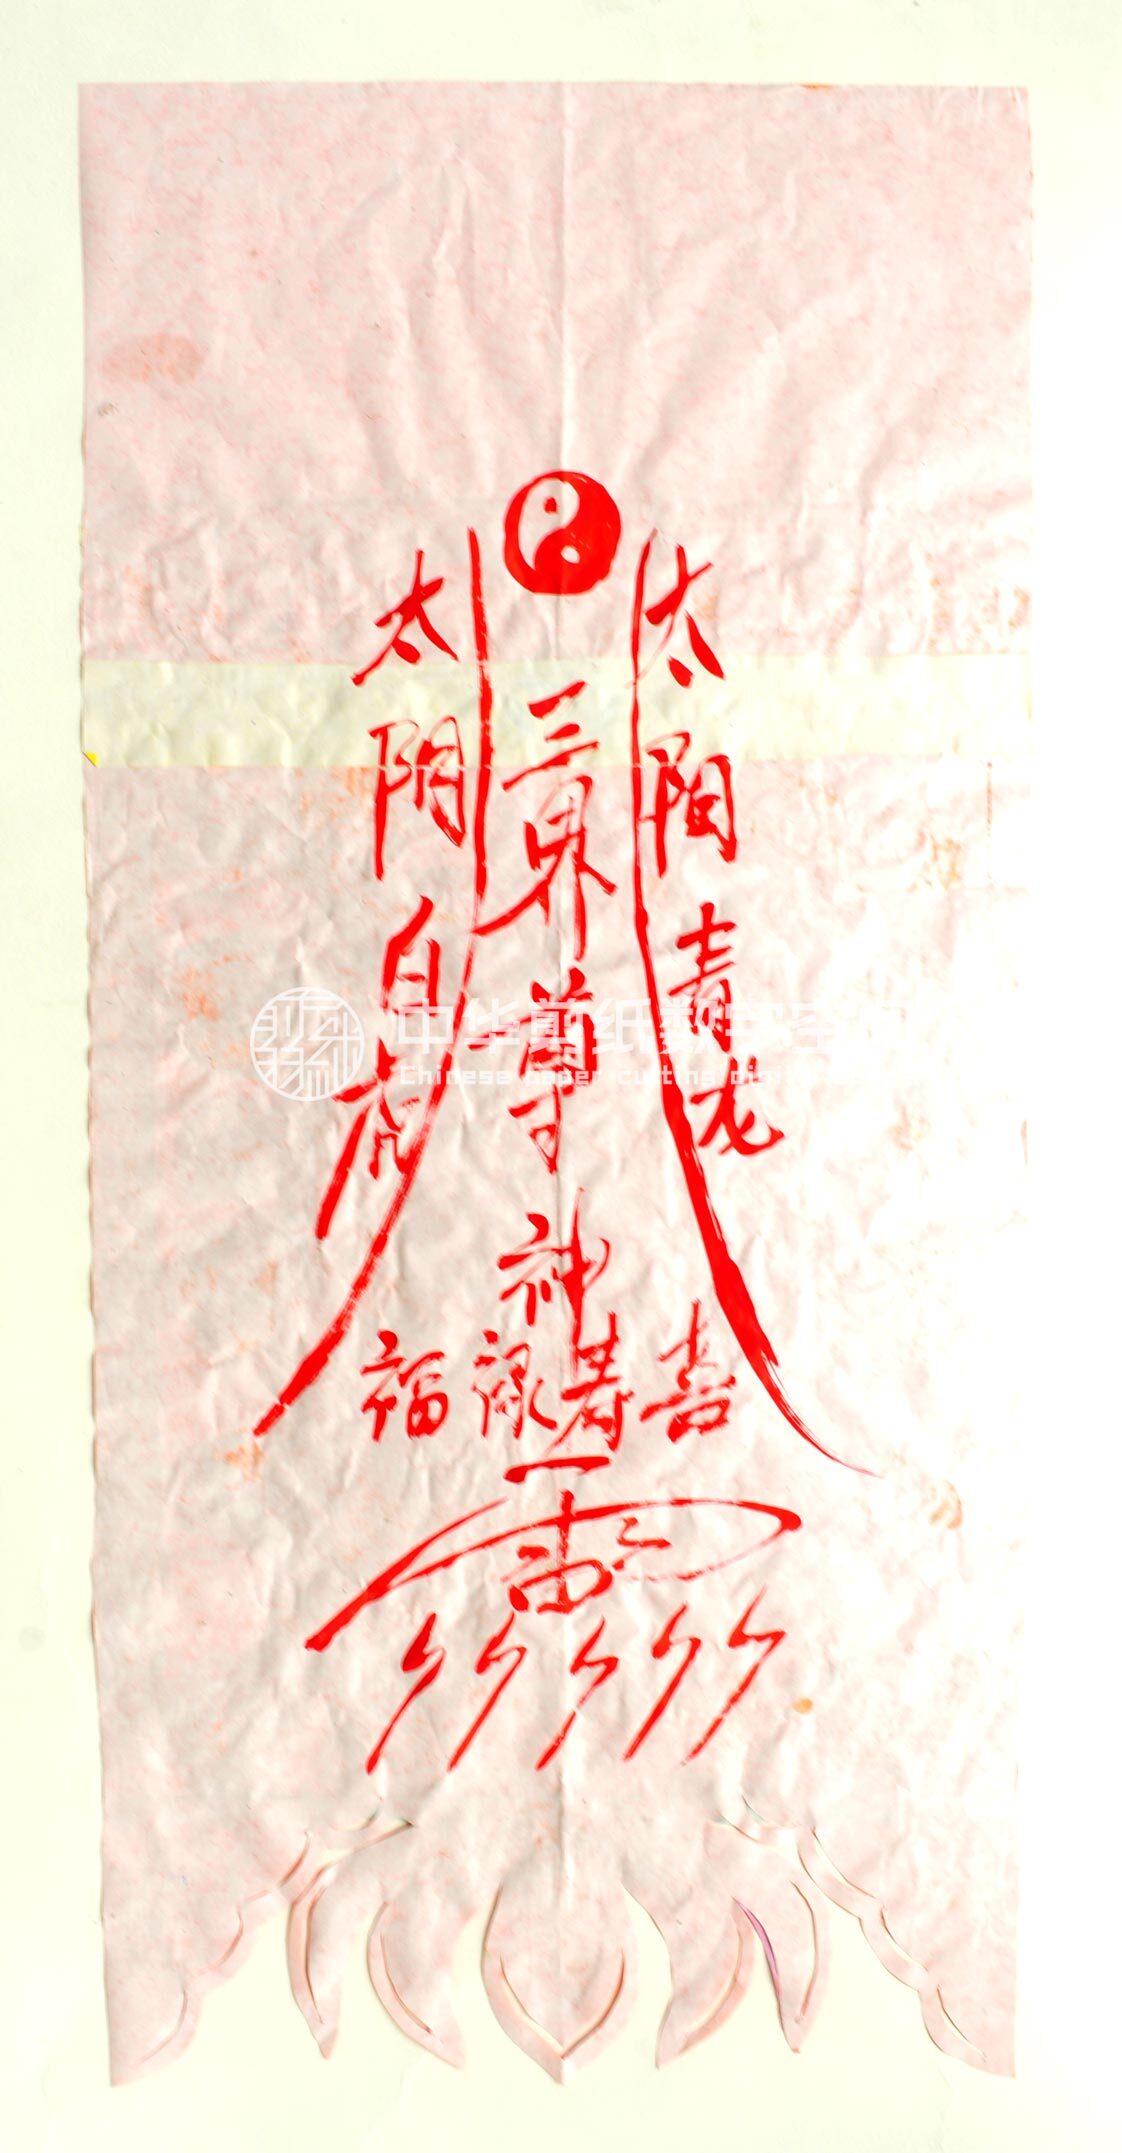 太阳青龙
三界尊神
太阴白虎
福禄寿喜
中华剪纸数
Chinese paper-cutting digital